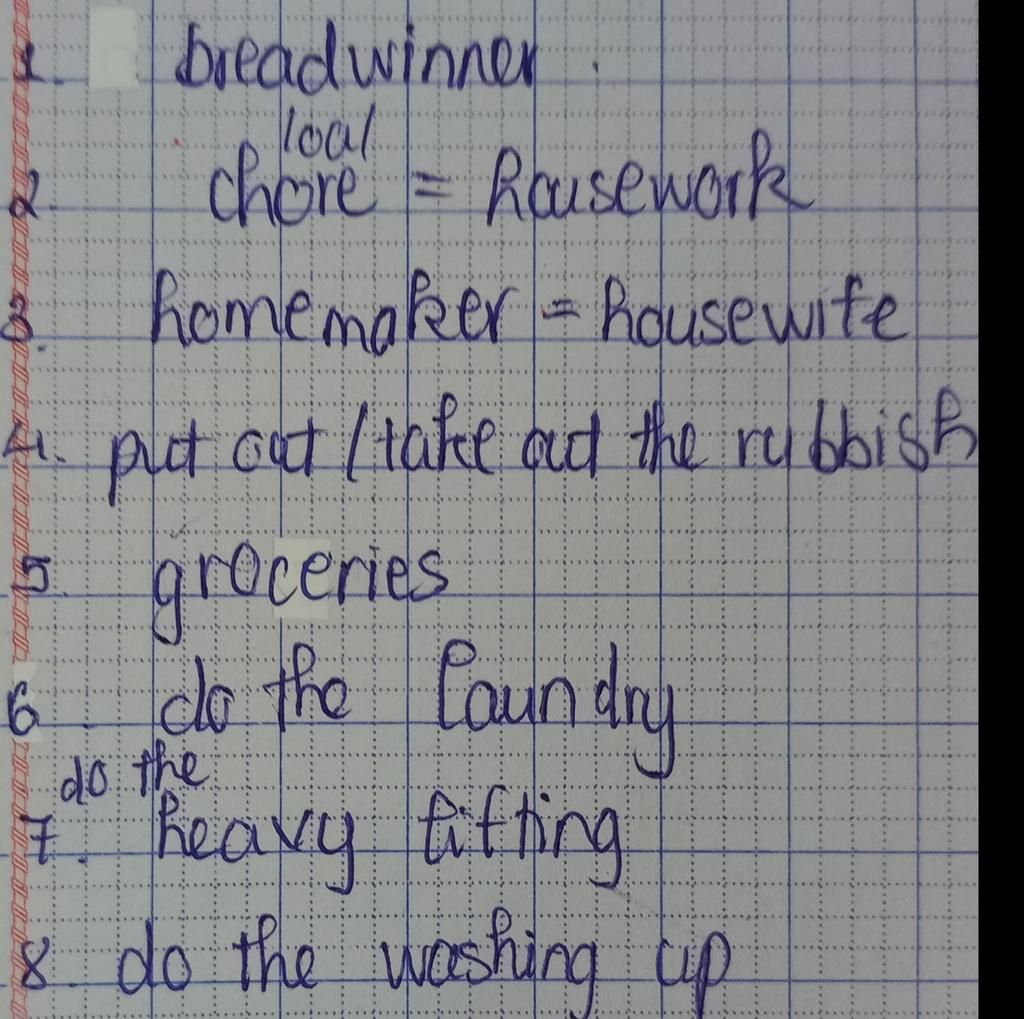 1. breadwinner
load
2. chore = housework
3. homemaker = housewife
4. put out / take out the rubbish
5. groceries
6. do the laundry
do the
7. heavy lifting
8. do the washing up